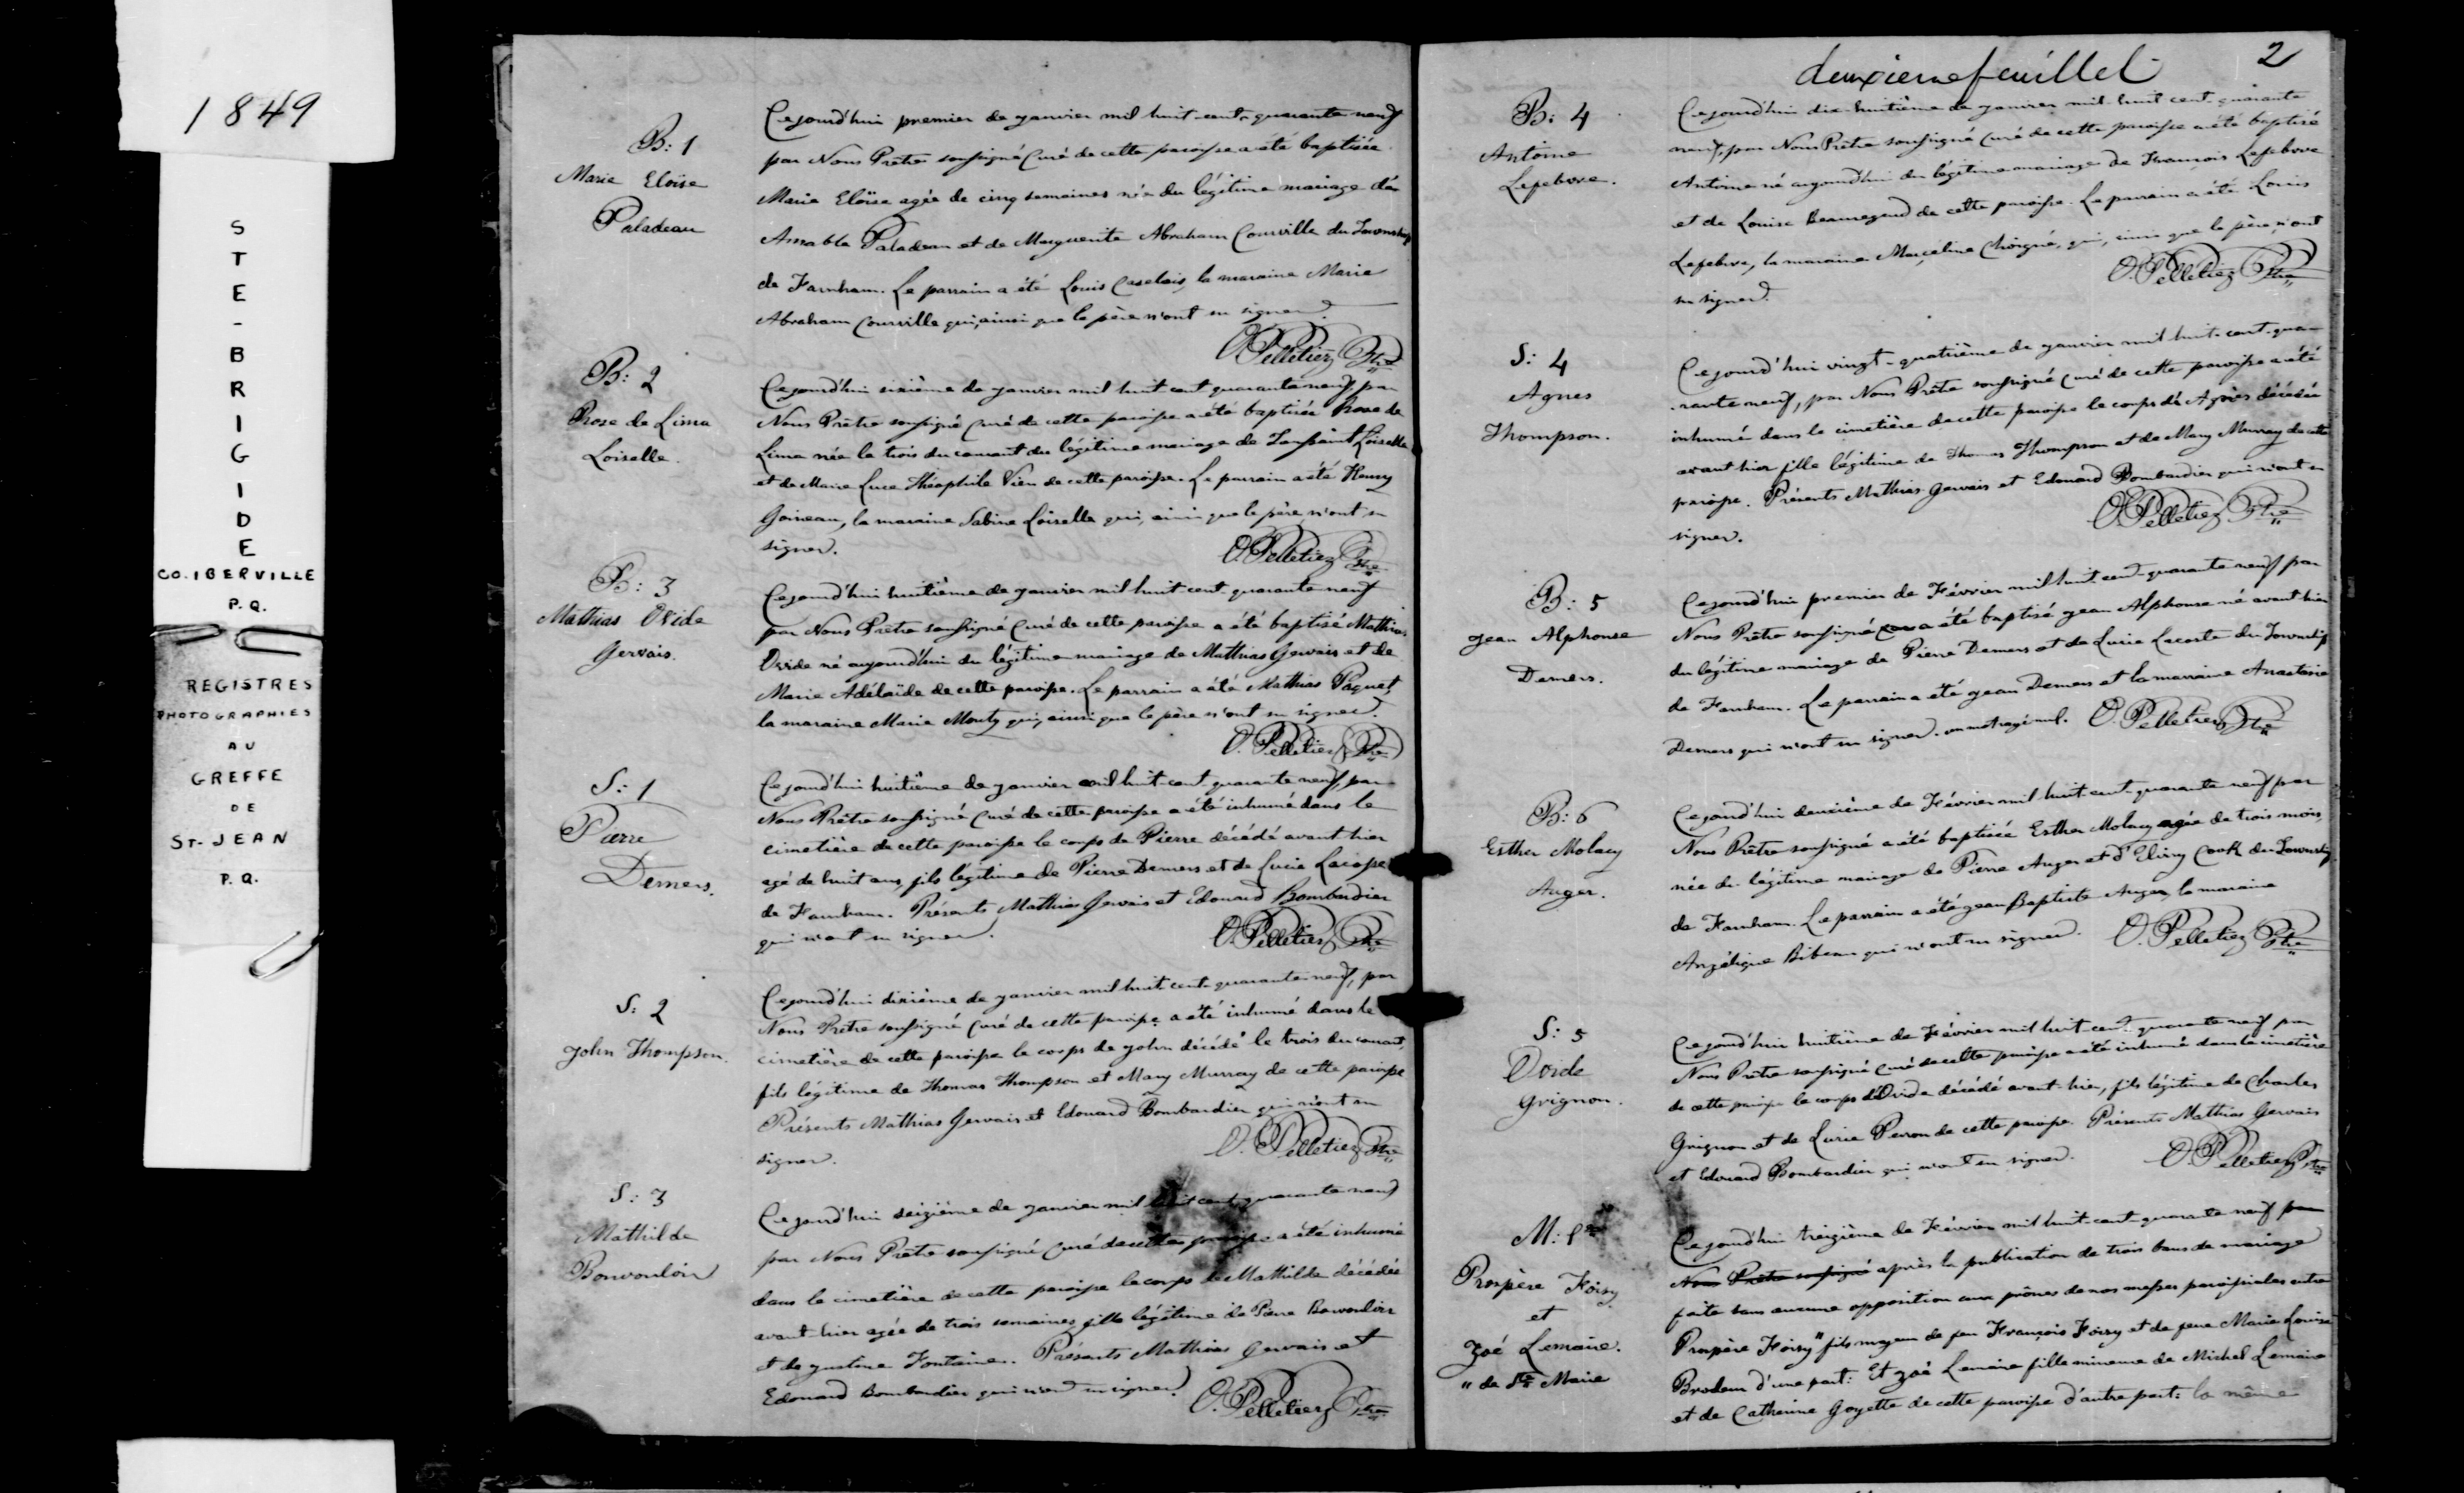 1849
STE-BRIGIDE
CO. IBERVILLE
P.Q.
REGISTRES
PHOTOGRAPHIES
AU
GREFFE
DE
ST-JEAN
P.Q.
B: 1
Marie Eloïse
Paladeau
Cejourd'hui premier de janvier mil huit-cent-quarante neuf
par Nous Prêtre soussigné Curé de cette paroisse a été baptisée
Marie Eloïse agée de cinq semaines née du légitime mariage d'
Amable Paladeau et de Marguerite Abraham Courville du Township
de Farnham. Le parrain a été Louis Caselais, la maraine Marie
Abraham Courville qui, ainsi que le père n'ont su signer.
O. Pelletier Ptre
B: 2
Rose de Lima
Loiselle.
Cejourd'hui sixième de janvier mil huit cent quarante neuf par
Nous Prêtre soussigné Curé de cette paroisse a été baptisée Rose de
Lima née le trois du courant du légitime mariage de Toussaint Loiselle
et de Marie Luce Théophile Vien de cette paroisse. Le parrain a été Remy
Goineau, la maraine Sabine Loiselle qui, ainsi que le père, n'ont su
signer.
O. Pelletier Ptre
B: 3
Mathias Ovide
Gervais.
Cejourd'hui huitième de janvier mil huit-cent quarante neuf
par Nous Prêtre soussigné Curé de cette paroisse a été baptisé Mathias
Ovide né aujourd'hui du légitime mariage de Mathias Gervais et de
Marie Adélaïde de cette paroisse. Le parrain a été Mathias Paquet,
la maraine Marie Monty qui, ainsi que le père n'ont su signer.
O. Pelletier Ptre
S: 1
Pierre
Demers.
Cejourd'hui huitième de janvier mil huit-cent quarante neuf, par
Nous Prêtre soussigné Curé de cette paroisse a été inhumé dans le
cimetière de cette paroisse le corps de Pierre décédé avant hier
agé de huit ans, fils légitime de Pierre Demers et de Lucie
de Farnham. Présents Mathias Gervais et Edouard Bombardier
qui n'ont su signer.
O. Pelletier Ptre
S: 2
John Thompson.
Cejourd'hui dixième de janvier mil huit-cent quarante neuf, par
Nous Prêtre soussigné Curé de cette paroisse a été inhumé dans le
cimetière de cette paroisse le corps de John décédé le trois du courant,
fils légitime de Thomas Thompson et Mary Murray de cette paroisse
Présents Mathias Gervais et Edouard Bombardier qui n'ont su
signer.
O. Pelletier Ptre
S: 3
Mathilde
Bonvouloir
Cejourd'hui seizième de janvier mil huit cent quarante neuf
par Nous Prêtre soussigné Curé de cette paroisse a été inhumé
dans le cimetière de cette paroisse le corps de Mathilde décédée
avant hier agée de trois semaines, fille légitime de Pierre Bonvouloir
et de Justine Fontaine. Présents Mathias Gervais et
Edouard Bombardier qui n'ont su signer.
O. Pelletier Ptre
deuxieme feuillet
2
B: 4
Antoine
Lefebvre.
Cejourd'hui dix-huitième de janvier mil-huit cent-quarante
neuf, par Nous Prêtre soussigné Curé de cette paroisse a été baptisé
Antoine né aujourd'hui du légitime mariage de François Lefebvre
et de Louise Beauregard de cette paroisse. Le parrain a été Louis
Lefebvre, la maraine Marceline qui, ainsi que le père, n'ont
su signer.
O. Pelletier Ptre
S: 4
Agnes
Thompson.
Cejourd'hui vingt-quatrième de janvier mil huit-cent-qua-
rante neuf, par Nous Prêtre soussigné Curé de cette paroisse a été
inhumé dans le cimetière de cette paroisse le corps de Agnès décédée
avant hier fille légitime de Thomas Thompson et de Mary Murray de cette
paroisse. Présents Mathias Gervais et Edouard Bombardier qui n'ont su
signer.
O. Pelletier Ptre
B: 5
Jean Alphonse
Demers.
Cejourd'hui premier de Février mil huit cent quarante neuf par
Nous Prêtre soussigné a été baptisé Jean Alphonse né avant hier
du légitime mariage de Pierre Demers et de Lucie Lacoste du Township
de Farnham. Le parrain a été Jean Demers et la marraine Anastasie
Demers qui n'ont su signer. un mot rayé nul.
O. Pelletier Ptre
B: 6
Esther Molacy
Auger.
Cejourd'hui deuxième de Février mil huit-cent-quarante neuf par
Nous Prêtre soussigné a été baptisée Esther Molacy agée de trois mois,
née du légitime mariage de Pierre Auger et d' Cook du Township
de Farnham. Le parrain a été Jean Baptiste Auger, la maraine
Angélique Bibeau qui n'ont su signer.
O. Pelletier Ptre
S: 5
Ovide
Grignon.
Cejourd'hui huitième de Février mil huit-cent-quarante neuf par
Nous Prêtre soussigné Curé de cette paroisse a été inhumé dans le cimetière
de cette paroisse le corps d'Ovide décédé avant-hier, fils légitime de Charles
Grignon et de Lucie Peron de cette paroisse. Présents Mathias Gervais
et Edouard Bombardier qui n'ont su signer.
O. Pelletier Ptre
M: 1er
Prospère Foisy
et
Zoé Lemaire.
" de Ste Marie
Cejourd'hui treizième de Février mil huit-cent-quarante neuf par
Nous Prêtre soussigné après la publication de trois bans de mariage
faite sans aucune opposition aux prônes de nos messes paroissiales entre
Prospère Foisy" fils majeur de feu François Foisy et de feue Marie Louise
Brodeur d'une part: Et Zoé Lemaire fille mineure de Michel Lemaire
et de Catherine Goyette de cette paroisse d'autre part: la même